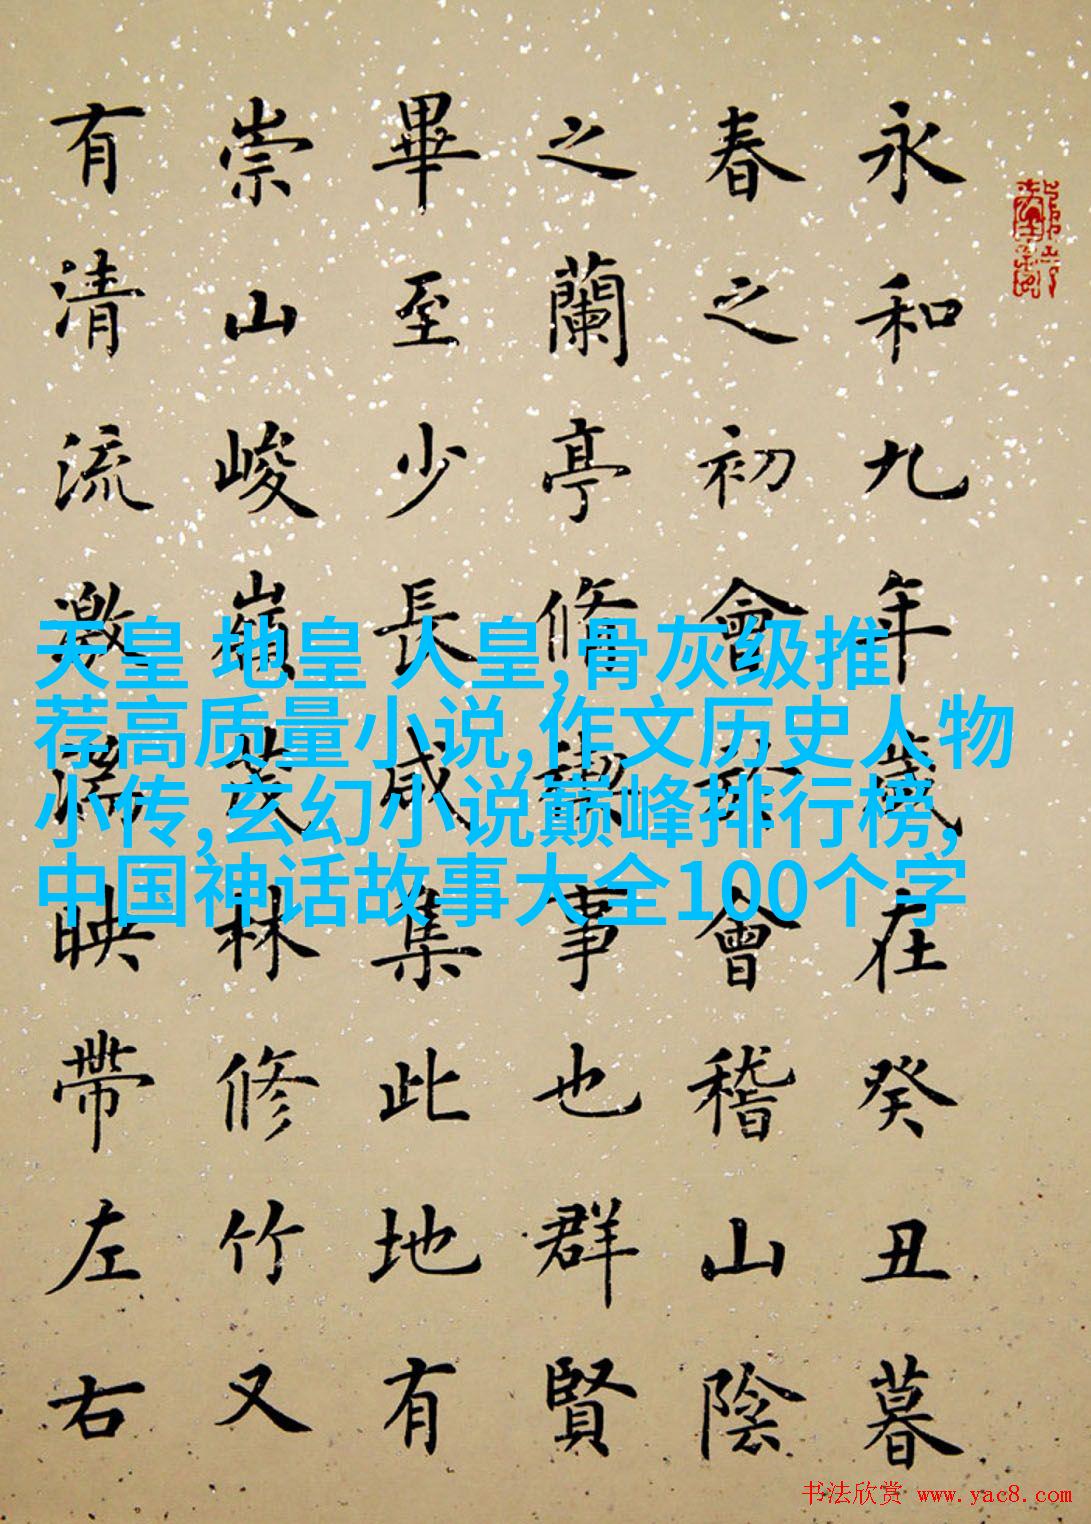 永和九年歲在癸丑暮
春之初會於會稽山陰
之蘭亭脩禊事也群賢
畢至少長咸集此地有
崇山峻嶺茂林修竹又
有清流激湍映帶左右
天皇 地皇 人皇,骨灰级推
荐高质量小说,作文历史人物
小传,玄幻小说巅峰排行榜,
中国神话故事大全100个字
书法欣赏 www.yac8.com